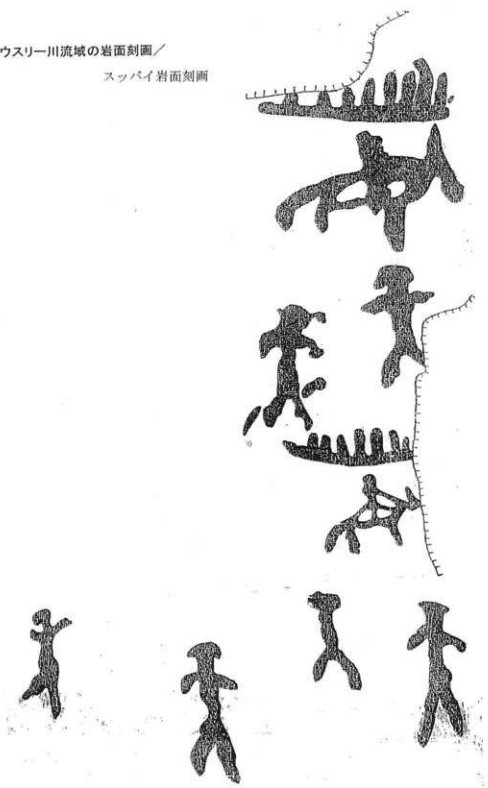 ウスリー川流域の岩面刻画／
スッパイ岩面刻画